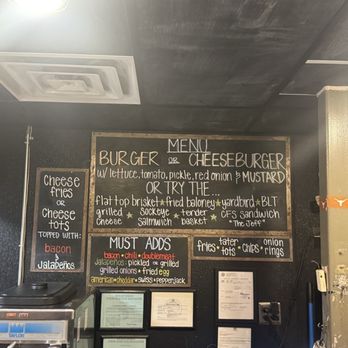 MENU
BURGER OR CHEESEBURGER
w/ lettuce, tomato, pickle, red onion & MUSTARD
OR TRY THE...
flat top brisket ★ fried baloney ★ yardbird ★ BLT
grilled ★ sockeye ★ tender ★ CFS sandwich
Cheese Salmwich basket "The Jeff"
Cheese
fries
OR
Cheese
tots
TOPPED WITH:
bacon
&
Jalapeños
MUST ADDS
bacon ★ chili ★ doublemeat
Jalapeños: pickled or grilled
grilled onions ★ fried egg
american ★ cheddar ★ swiss ★ pepperjack
fries ★ tater tots ★ chips ★ onion rings
TAYLOR